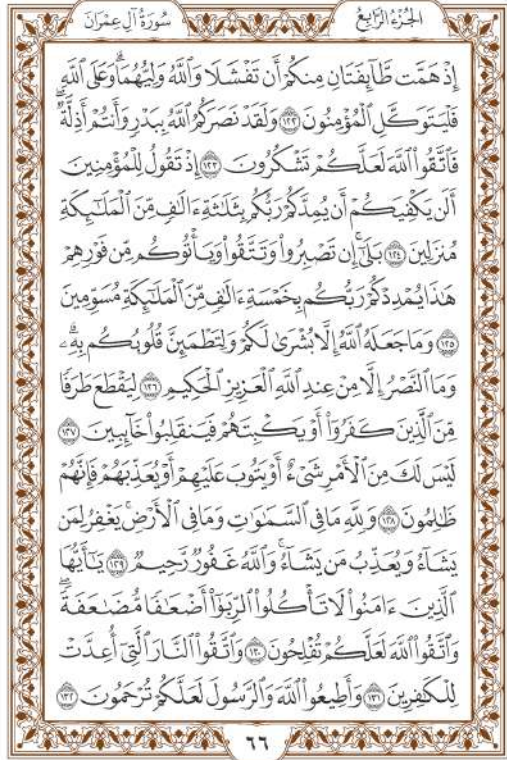 سُورَةُ آلِ عِمْرَانَ
الجُزْءُ الرَّابِعُ
إِذْ هَمَّت طَّآئِفَتَانِ مِنكُمْ أَن تَفْشَلَا وَٱللَّهُ وَلِيُّهُمَاۗ وَعَلَى ٱللَّهِ
فَلْيَتَوَكَّلِ ٱلْمُؤْمِنُونَ ١٢٢ وَلَقَدْ نَصَرَكُمُ ٱللَّهُ بِبَدْرٍ وَأَنتُمْ أَذِلَّةٌۖ
فَٱتَّقُوا۟ ٱللَّهَ لَعَلَّكُمْ تَشْكُرُونَ ١٢٣ إِذْ تَقُولُ لِلْمُؤْمِنِينَ
أَلَن يَكْفِيَكُمْ أَن يُمِدَّكُمْ رَبُّكُم بِثَلَٰثَةِ ءَالَٰفٍ مِّنَ ٱلْمَلَٰٓئِكَةِ
مُنزَلِينَ ١٢٤ بَلَىٰٓۚ إِن تَصْبِرُوا۟ وَتَتَّقُوا۟ وَيَأْتُوكُم مِّن فَوْرِهِمْ
هَٰذَا يُمْدِدْكُمْ رَبُّكُم بِخَمْسَةِ ءَالَٰفٍ مِّنَ ٱلْمَلَٰٓئِكَةِ مُسَوِّمِينَ
١٢٥ وَمَا جَعَلَهُ ٱللَّهُ إِلَّا بُشْرَىٰ لَكُمْ وَلِتَطْمَئِنَّ قُلُوبُكُم بِهِۦۗ
وَمَا ٱلنَّصْرُ إِلَّا مِنْ عِندِ ٱللَّهِ ٱلْعَزِيزِ ٱلْحَكِيمِ ١٢٦ لِيَقْطَعَ طَرَفًا
مِّنَ ٱلَّذِينَ كَفَرُوٓا۟ أَوْ يَكْبِتَهُمْ فَيَنقَلِبُوا۟ خَآئِبِينَ ١٢٧
لَيْسَ لَكَ مِنَ ٱلْأَمْرِ شَىْءٌ أَوْ يَتُوبَ عَلَيْهِمْ أَوْ يُعَذِّبَهُمْ فَإِنَّهُمْ
ظَٰلِمُونَ ١٢٨ وَلِلَّهِ مَا فِى ٱلسَّمَٰوَٰتِ وَمَا فِى ٱلْأَرْضِۚ يَغْفِرُ لِمَن
يَشَآءُ وَيُعَذِّبُ مَن يَشَآءُۚ وَٱللَّهُ غَفُورٌ رَّحِيمٌ ١٢٩ يَٰٓأَيُّهَا
ٱلَّذِينَ ءَامَنُوا۟ لَا تَأْكُلُوا۟ ٱلرِّبَوٰٓا۟ أَضْعَٰفًا مُّضَٰعَفَةًۖ
وَٱتَّقُوا۟ ٱللَّهَ لَعَلَّكُمْ تُفْلِحُونَ ١٣٠ وَٱتَّقُوا۟ ٱلنَّارَ ٱلَّتِىٓ أُعِدَّتْ
لِلْكَٰفِرِينَ ١٣١ وَأَطِيعُوا۟ ٱللَّهَ وَٱلرَّسُولَ لَعَلَّكُمْ تُرْحَمُونَ ١٣٢
٦٦